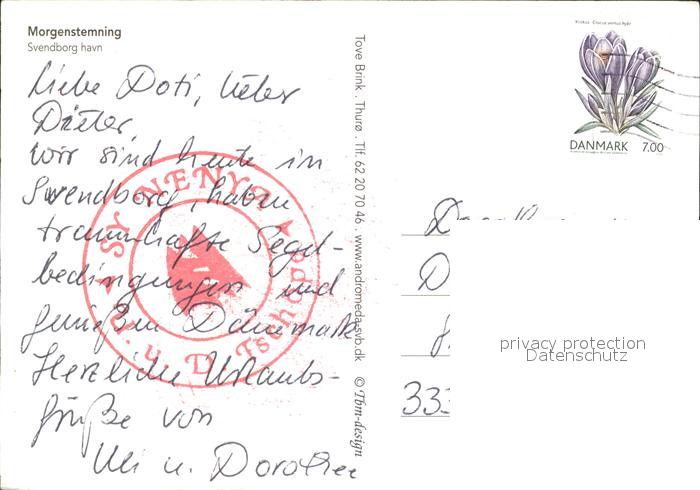 Morgenstemning
Svendborg havn
Liebe Doti, lieber
Dieter,
wir sind heute in
Swendborg, haben
traumhafte Segel-
bedingungen und
genießen Dänemark
Herzliche Urlaubs-
grüße von
Uli u. Dorothee
SY NENYA
U. u. D. Tschöpe
Tove Brink . Thurø . Tlf. 62 20 70 46 . www.andromeda-svb.dk © Tbm-design
Krokus · Crocus vernus hybr
DANMARK 7.00
D
D
33
privacy protection
Datenschutz